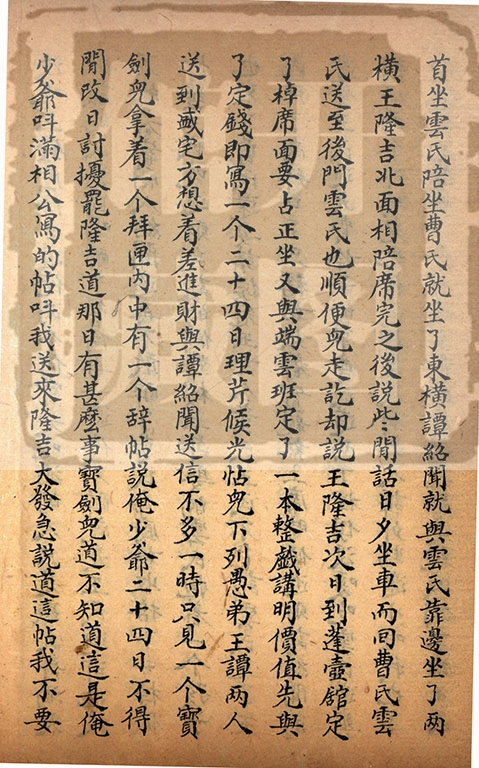 首坐雲氏陪坐曹氏就坐了東橫譚紹聞就與雲氏靠邊坐了兩
橫王隆吉北面相陪席完之後說些閒話日夕坐車而回曹氏雲
氏送至後門雲氏也順便兒走訖却說王隆吉次日到蓬壺舘定
了棹席面要占正坐又與端雲班定了一本整戲講明價值先與
了定錢即寫一个二十四日理芹候光帖兒下列愚弟王譚兩人
送到盛宅方想着差進財與譚紹聞送信不多一時只見一个寶
劍兒拿着一个拜匣内中有一个辞帖說俺少爺二十四日不得
閒改日討擾罷隆吉道那日有甚麼事寶劍兒道不知道這是俺
少爺呌滿相公寫的帖呌我送來隆吉大發急說道這帖我不要